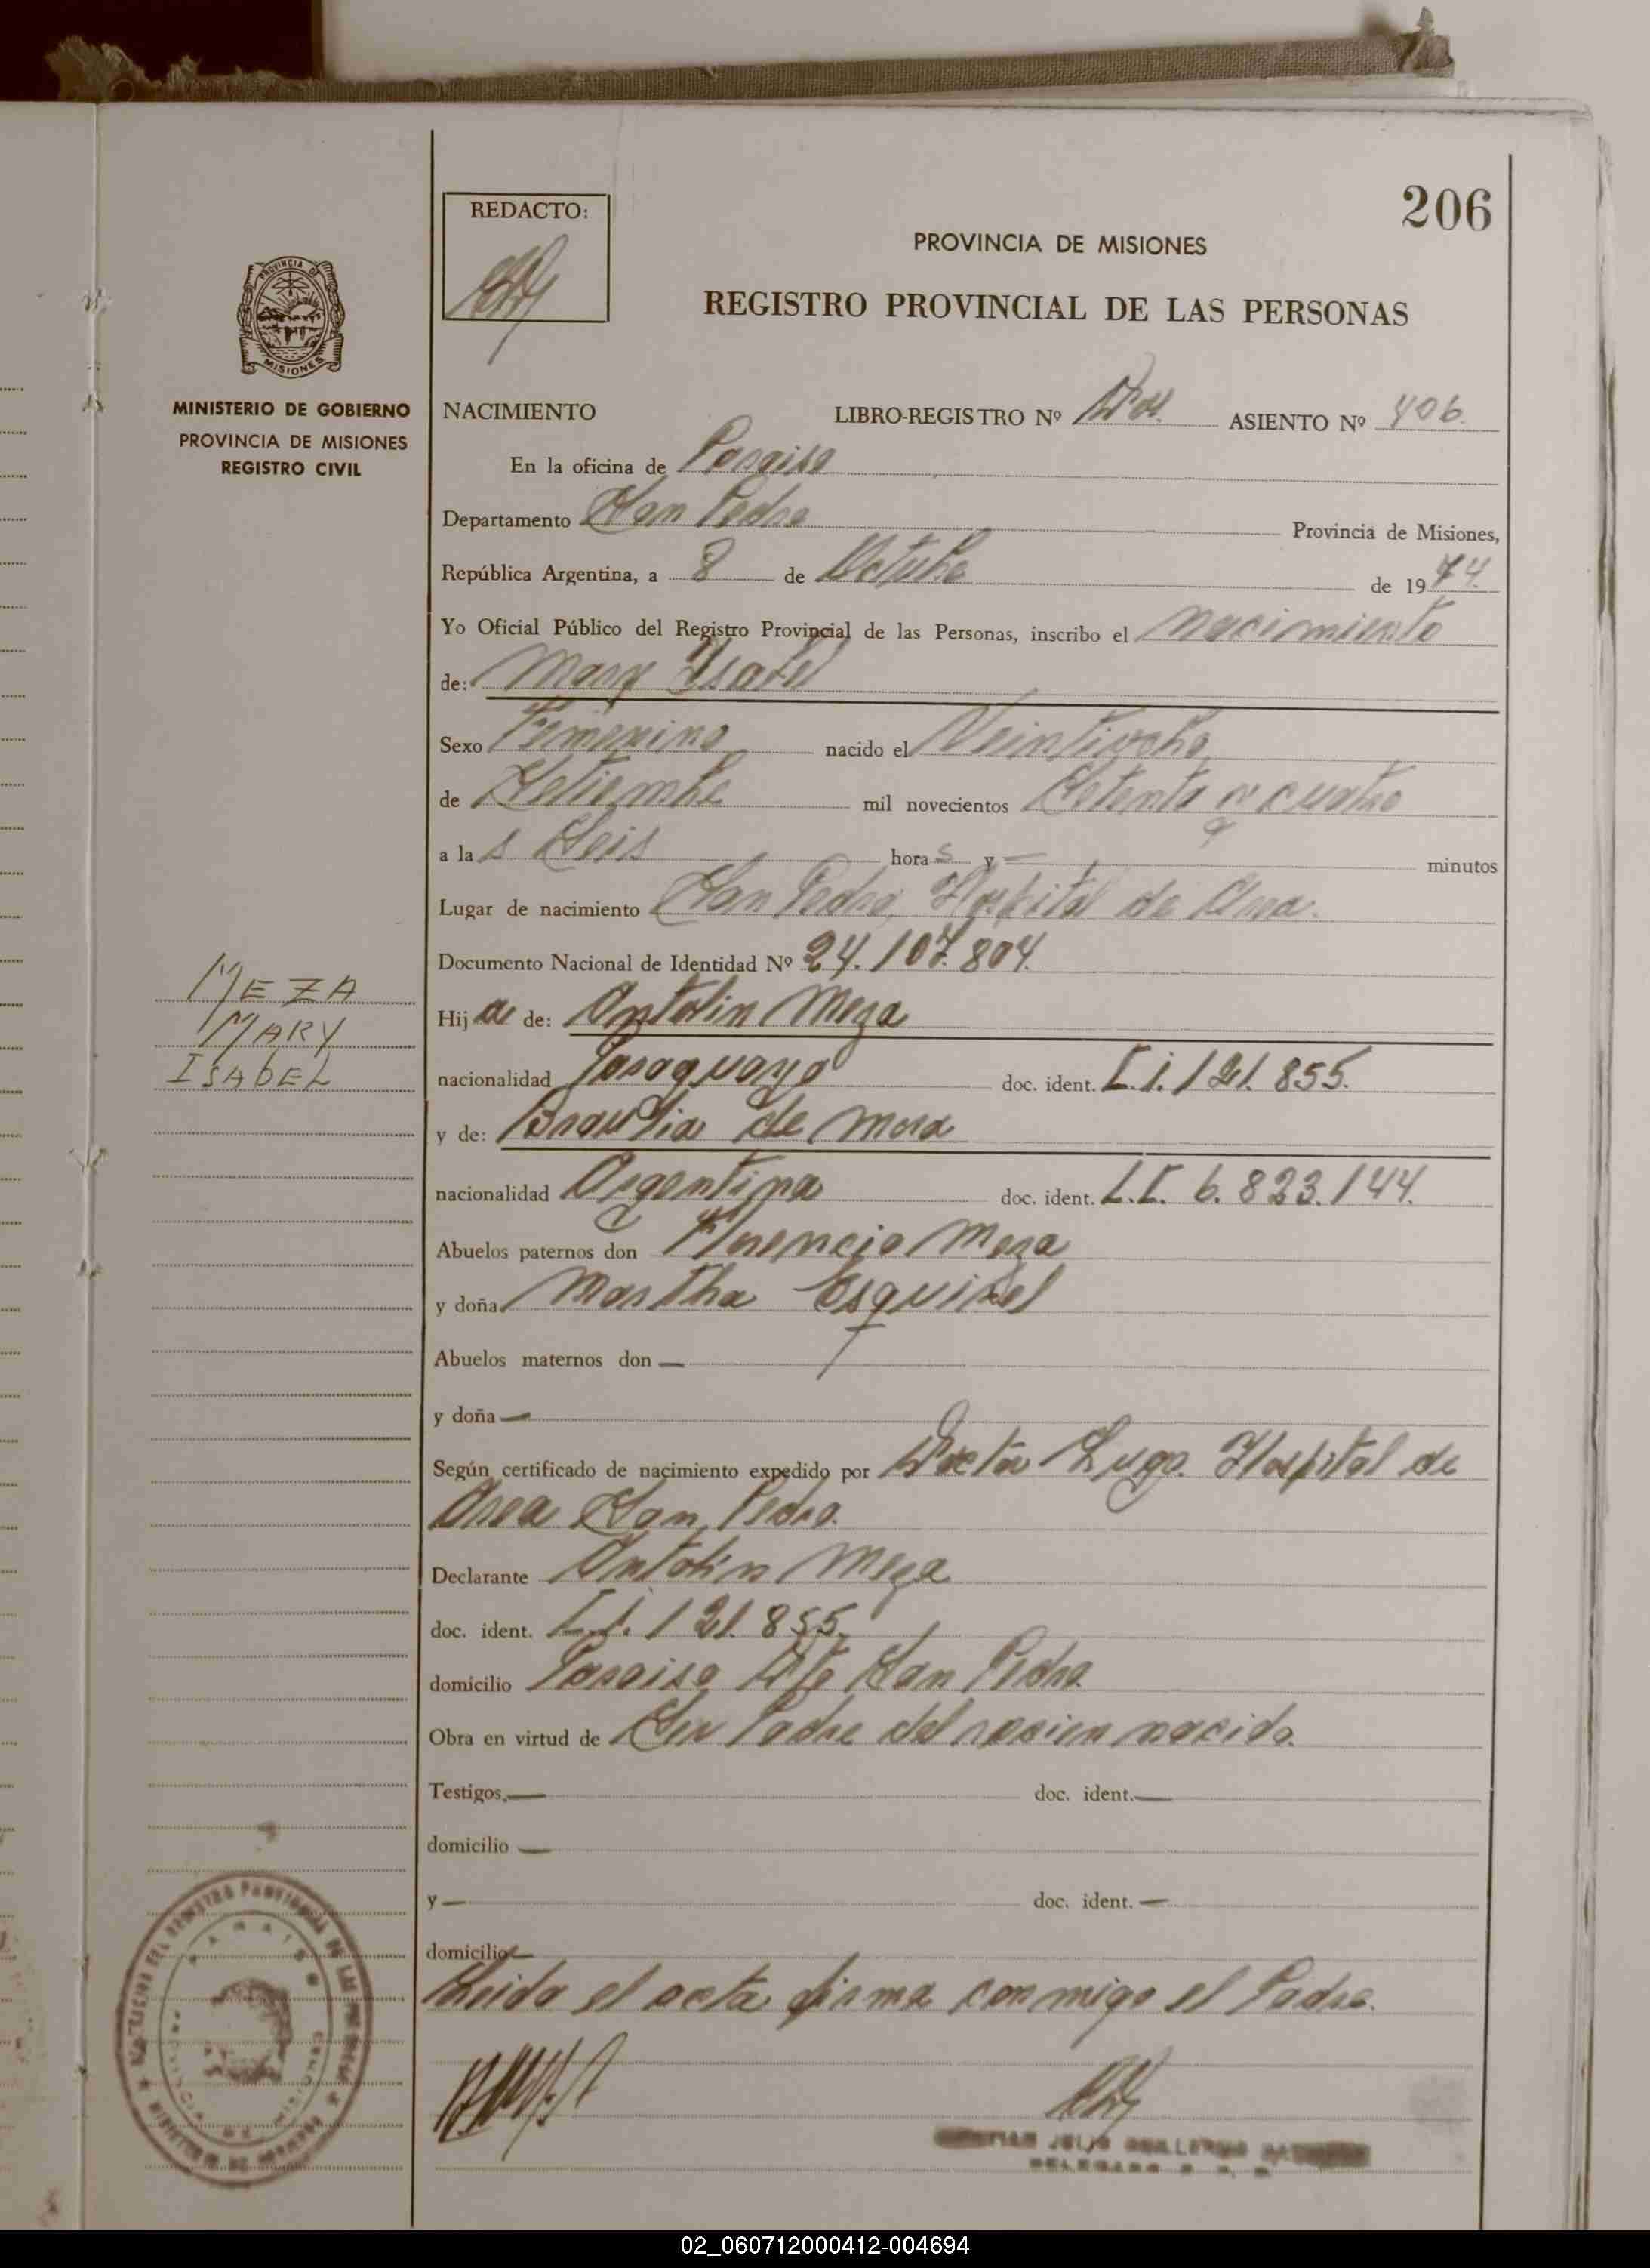 206
REDACTO:
PROVINCIA DE MISIONES
REGISTRO PROVINCIAL DE LAS PERSONAS
PROVINCIA DE
MISIONES
MINISTERIO DE GOBIERNO
PROVINCIA DE MISIONES
REGISTRO CIVIL
NACIMIENTO LIBRO-REGISTRO Nº Dos. ASIENTO Nº 406.
En la oficina de Paraiso
Departamento San Pedro Provincia de Misiones,
República Argentina, a 8 de Octubre de 1974.
Yo Oficial Público del Registro Provincial de las Personas, inscribo el nacimiento
de: Mary Isabel
Sexo Femenino nacido el Veintiocho
de Setiembre mil novecientos Setenta y cuatro
a las Seis horas y — minutos
Lugar de nacimiento San Pedro, Hospital de Area.
Documento Nacional de Identidad Nº 24.107.804.
MEZA
MARY
ISABEL
Hija de: Antolin Meza
nacionalidad Paraguayo doc. ident. C.I. 121.855.
y de: Braulia de Mora
nacionalidad Argentina doc. ident. L.C. 6.823.144.
Abuelos paternos don Florencio Meza
y doña Martha Esquivel
Abuelos maternos don —
y doña —
Según certificado de nacimiento expedido por Doctor Lugo. Hospital de
Area San Pedro.
Declarante Antolin Meza
doc. ident. C.I. 121.855.
domicilio Paraiso Dto San Pedro.
Obra en virtud de Ser Padre del resien nacido.
Testigos, — doc. ident. —
domicilio —
y — doc. ident. —
domicilio —
Leida el acta firma conmigo el Padre.
JULIO GUILLERMO
DELEGADO
02_060712000412-004694